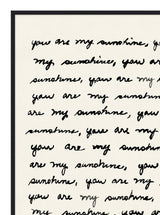 you are my sunshine, y
my sunshine, you ar
sunshine, you are my
you are my sunshin
are my sunshine, you
sunshine, you are my
you are my sunshine
are my sunshine, you
sunshine, you are my
you are my sunshine,
my sunshine, you ar